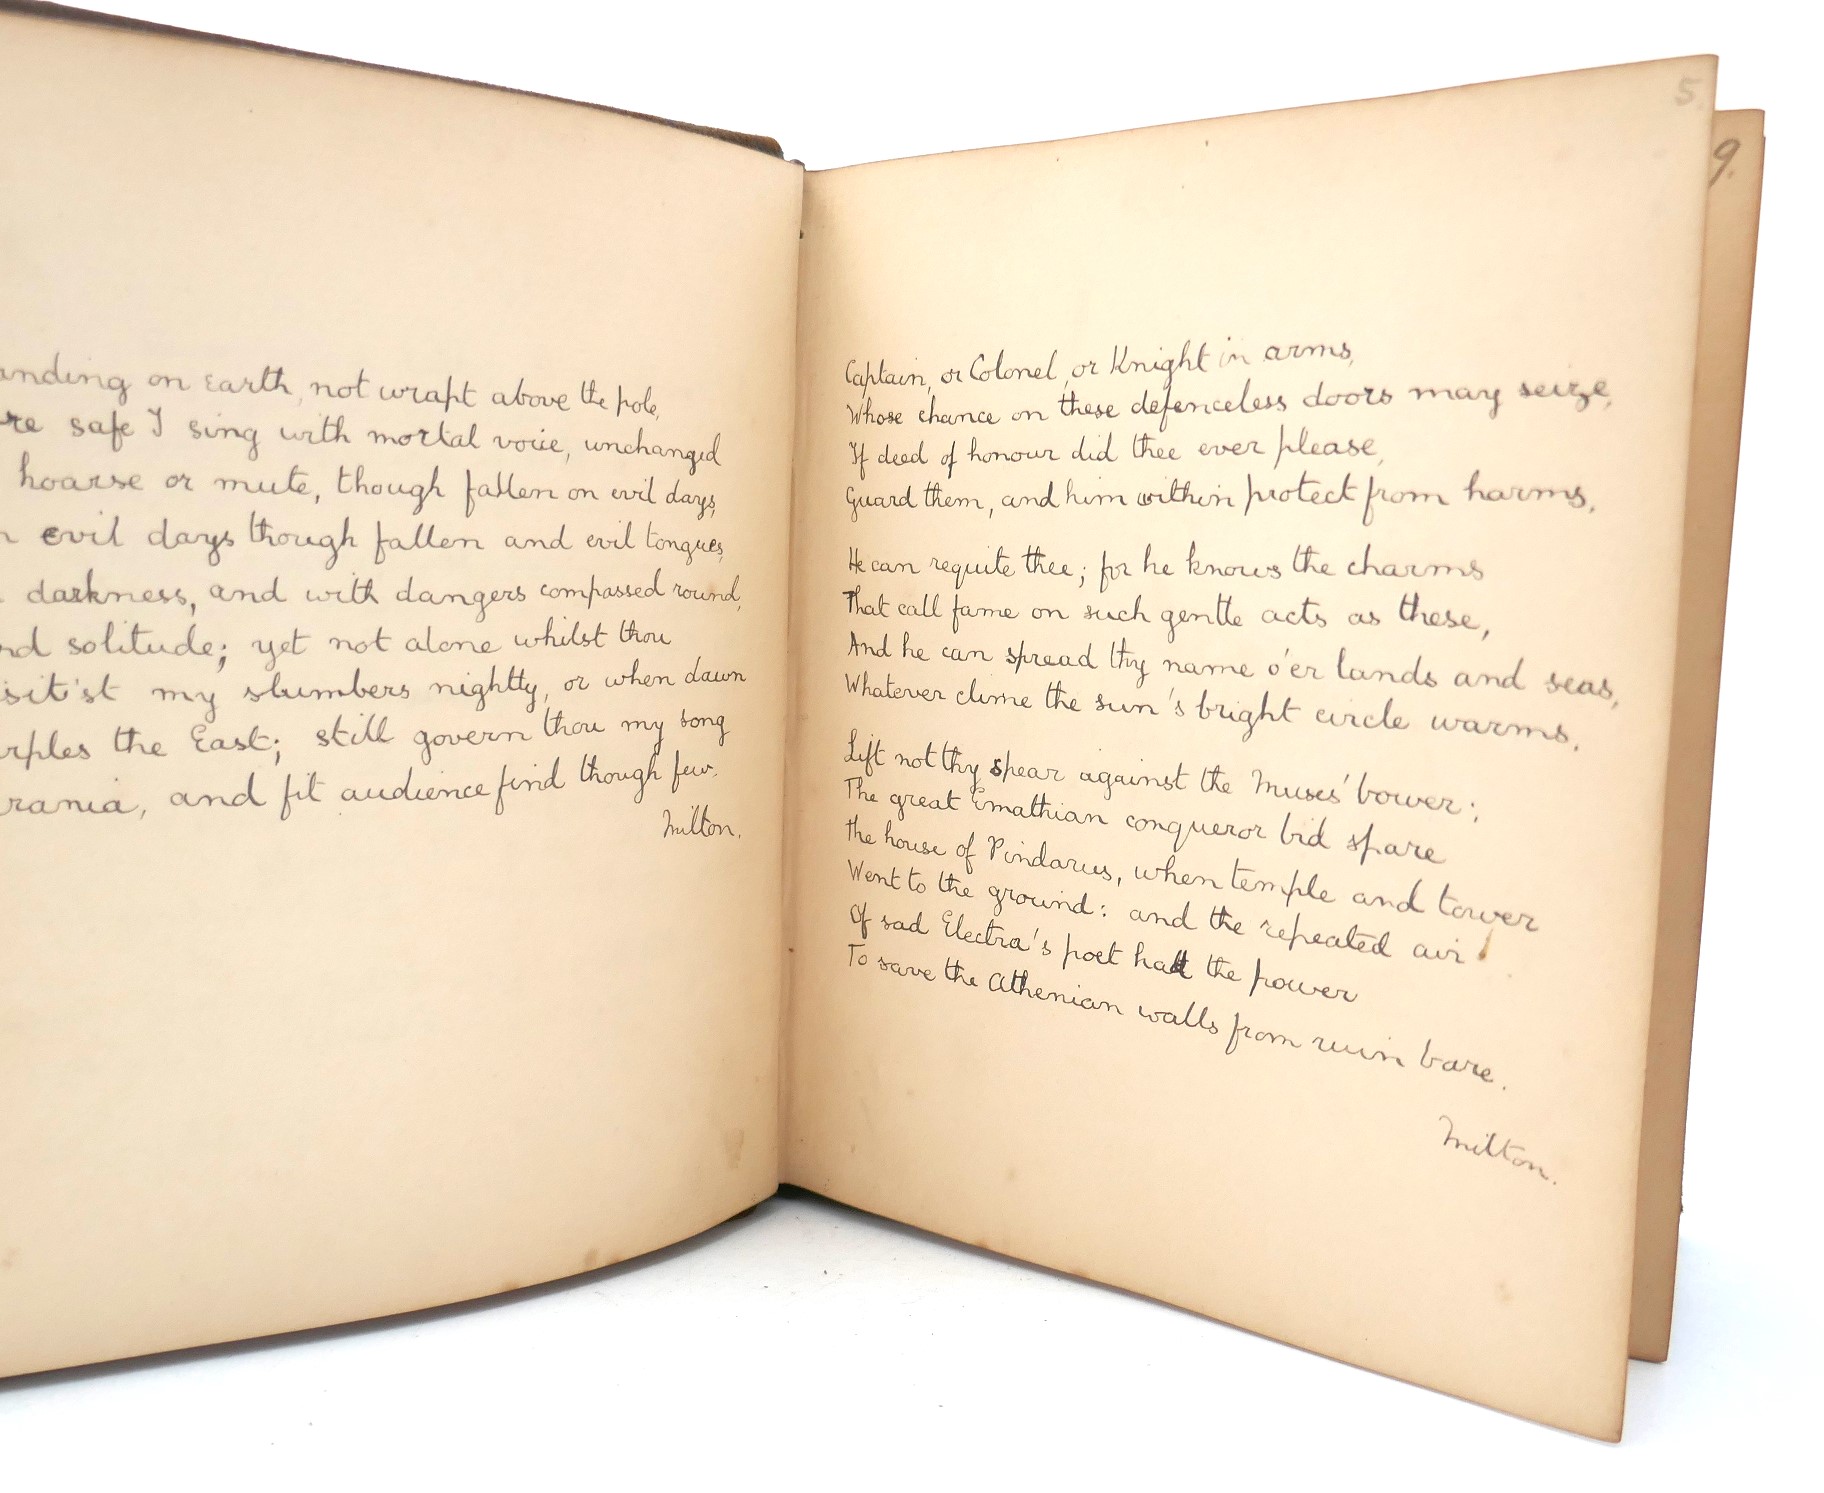 anding on Earth, not wrapt above the pole,
re safe I sing with mortal voice, unchanged
hoarse or mute, though fallen on evil days,
n evil days though fallen and evil tongues,
darkness, and with dangers compassed round,
nd solitude; yet not alone whilst thou
sit'st my slumbers nightly, or when dawn
rples the East; still govern thou my song
rania, and fit audience find though few.
Milton.
5.
9.
Captain, or Colonel, or Knight in arms,
Whose chance on these defenceless doors may seize,
If deed of honour did thee ever please,
Guard them, and him within protect from harms.
He can requite thee; for he knows the charms
That call fame on such gentle acts as these,
And he can spread thy name o'er lands and seas,
Whatever clime the sun's bright circle warms.
Lift not thy spear against the Muses' bower:
The great Emathian conqueror bid spare
the house of Pindarus, when temple and tower
Went to the ground: and the repeated air
Of sad Electra's poet had the power
To save the Athenian walls from ruin bare.
Milton.